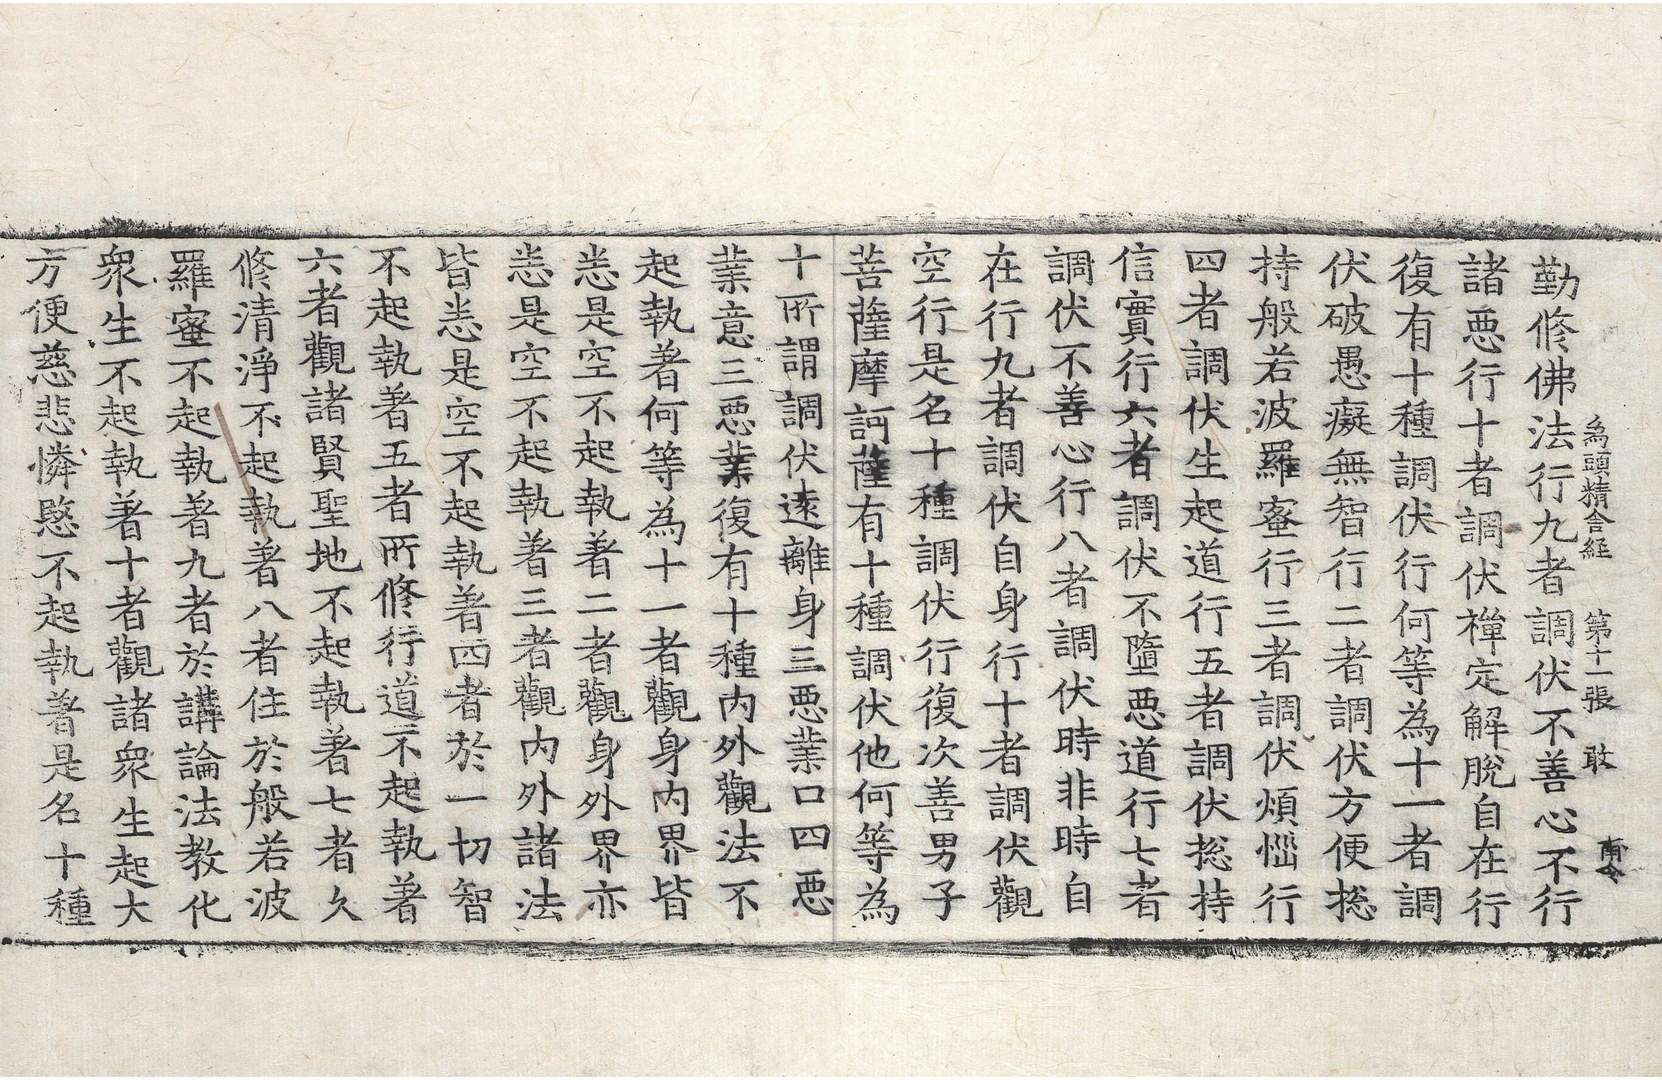 勤修佛法行九者調伏不善心不行
諸惡行十者調伏禪定解脫自在行
復有十種調伏行何等為十一者調
伏破愚癡無智行二者調伏方便捴
持般若波羅蜜行三者調伏煩惱行
四者調伏生起道行五者調伏捴持
信實行六者調伏不墮惡道行七者
調伏不善心行八者調伏時非時自
在行九者調伏自身行十者調伏觀
空行是名十種調伏行復次善男子
菩薩摩訶薩有十種調伏他何等為
十所謂調伏遠離身三惡業口四惡
業意三惡業復有十種內外觀法不
起執著何等為十一者觀身內界皆
悉是空不起執著二者觀身外界亦
悉是空不起執著三者觀內外諸法
皆悉是空不起執著四者於一切智
不起執著五者所修行道不起執著
六者觀諸賢聖地不起執著七者久
修清淨不起執著八者住於般若波
羅蜜不起執著九者於講論法教化
衆生不起執著十者觀諸衆生起大
方便慈悲憐愍不起執著是名十種
為頭精舍經 第十一張 敢